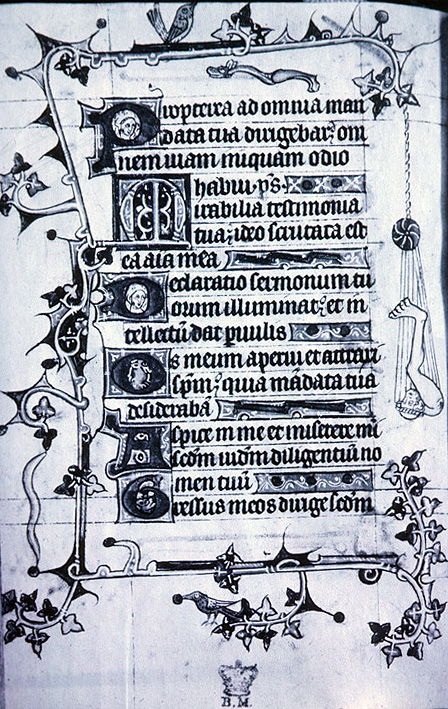 Propterea ad omnia man
data tua dirigebar: om
nem uiam iniquam odio
habui. ps.
Mirabilia testimonia
tua: ideo scrutata est
ea aĩa mea
Declaratio sermonum tu
orum illuminat: et in
tellectũ dat paruulis
Os meum aperui et attraxi
spm̃: quia mãdata tua
desiderabã
Aspice in me et miserere mei
scd̃m iudm̃ diligentiũ no
men tuũ
Gressus meos dirige scd̃m
B.M.